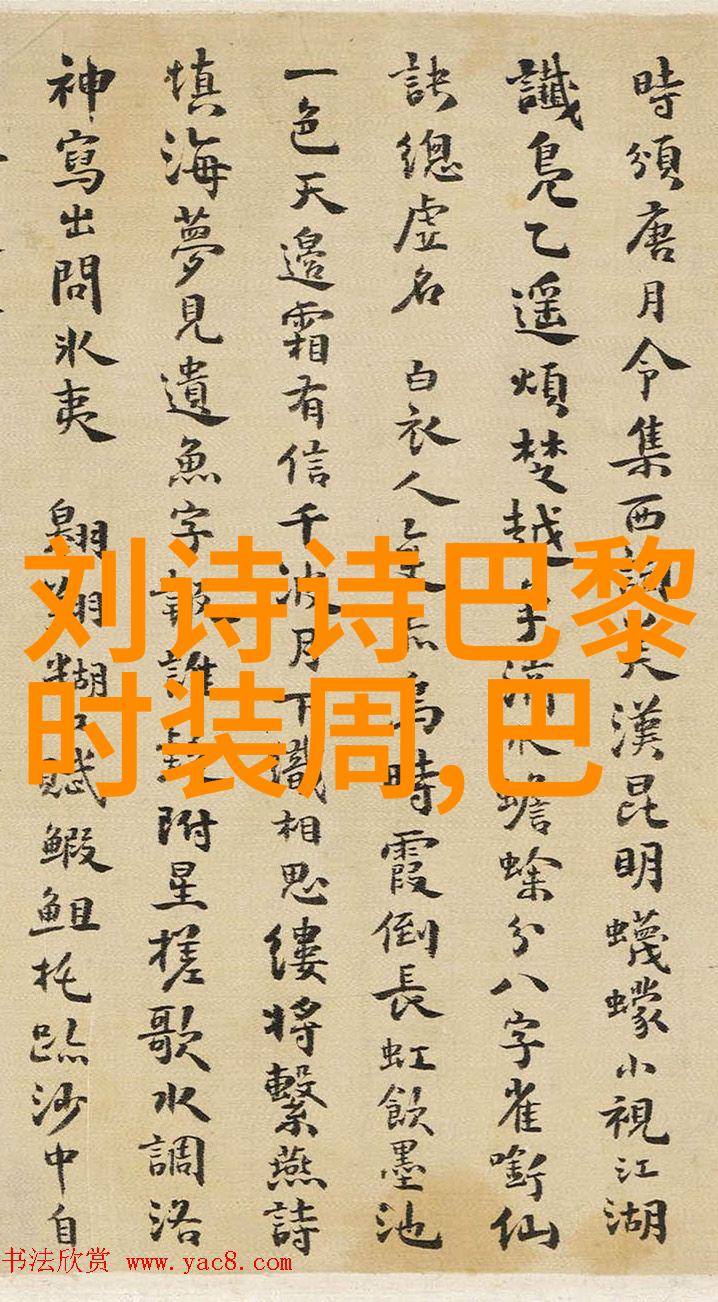 時頒唐月令集西漢昆明蠛蠓小視江湖
讖鳧乙遥煩楚越蟾蜍分八字雀銜仙
訣總虛名 白衣人烏時霞倒長虹飲墨池
一色天邊霜有信千波月下織相思縷將繫燕詩
填海夢見遺魚字報誰附星槎歌水調洛
神寫出問氷夷 翺翔糊口賦鰕䱉托跡沙中自
刘诗诗巴黎
时装周,巴
书法欣赏 www.yac8.com